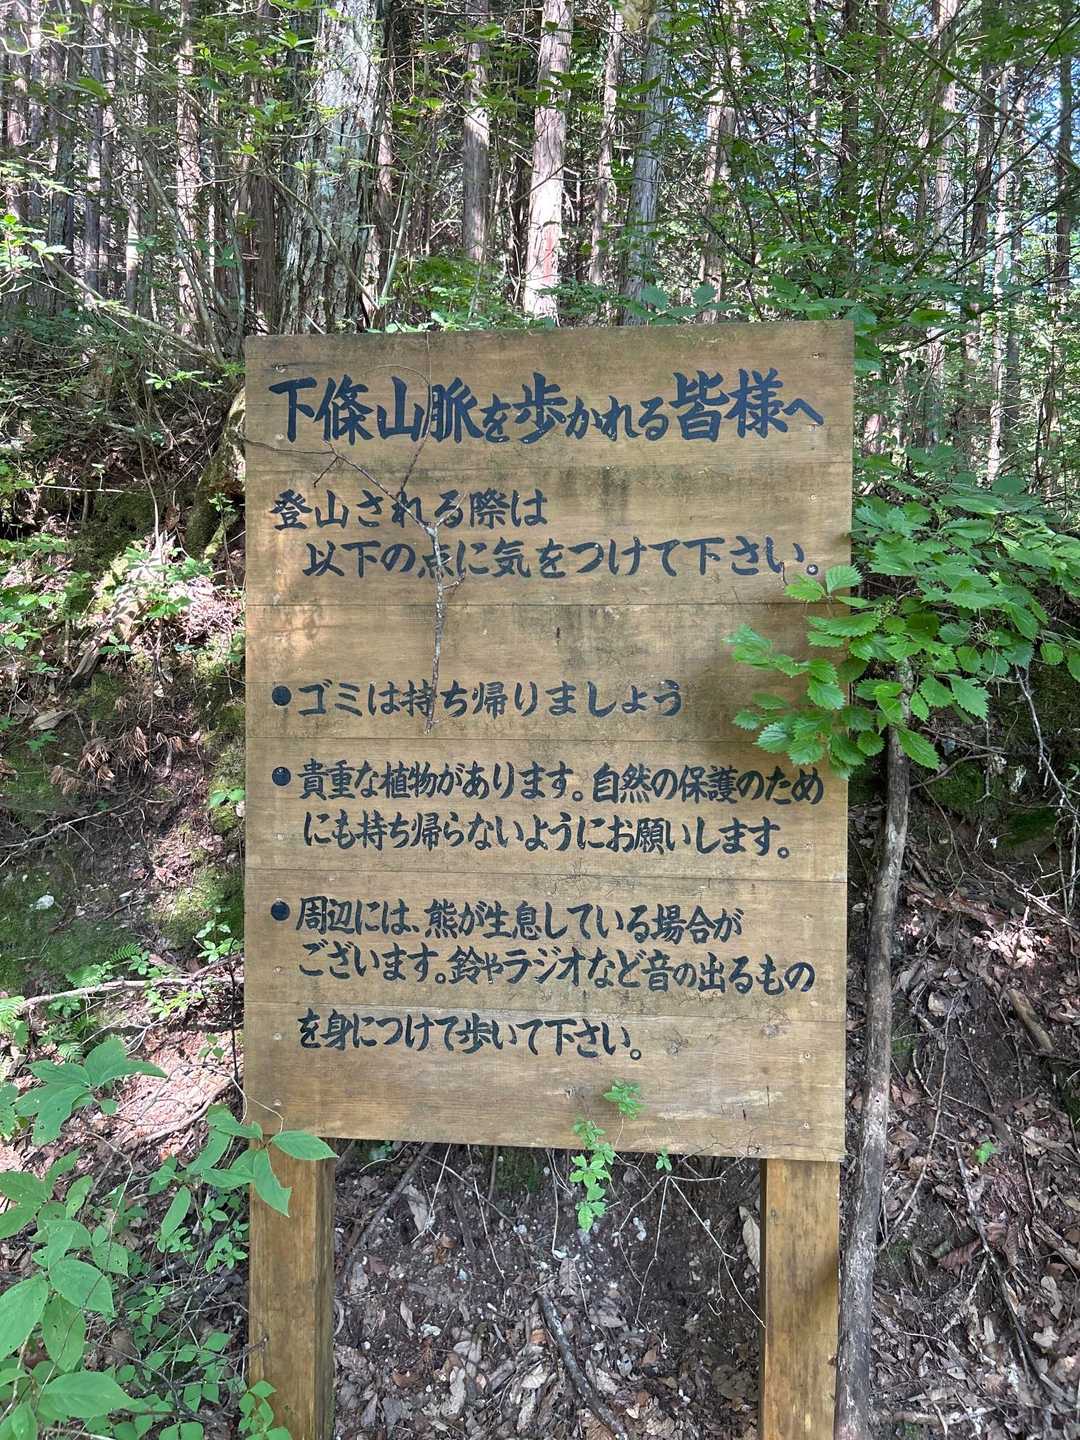 下條山脈を歩かれる皆様へ
登山される際は
以下の点に気をつけて下さい。
●ゴミは持ち帰りましょう
●貴重な植物があります。自然の保護のため
にも持ち帰らないようにお願いします。
●周辺には、熊が生息している場合が
ございます。鈴やラジオなど音の出るもの
を身につけて歩いて下さい。